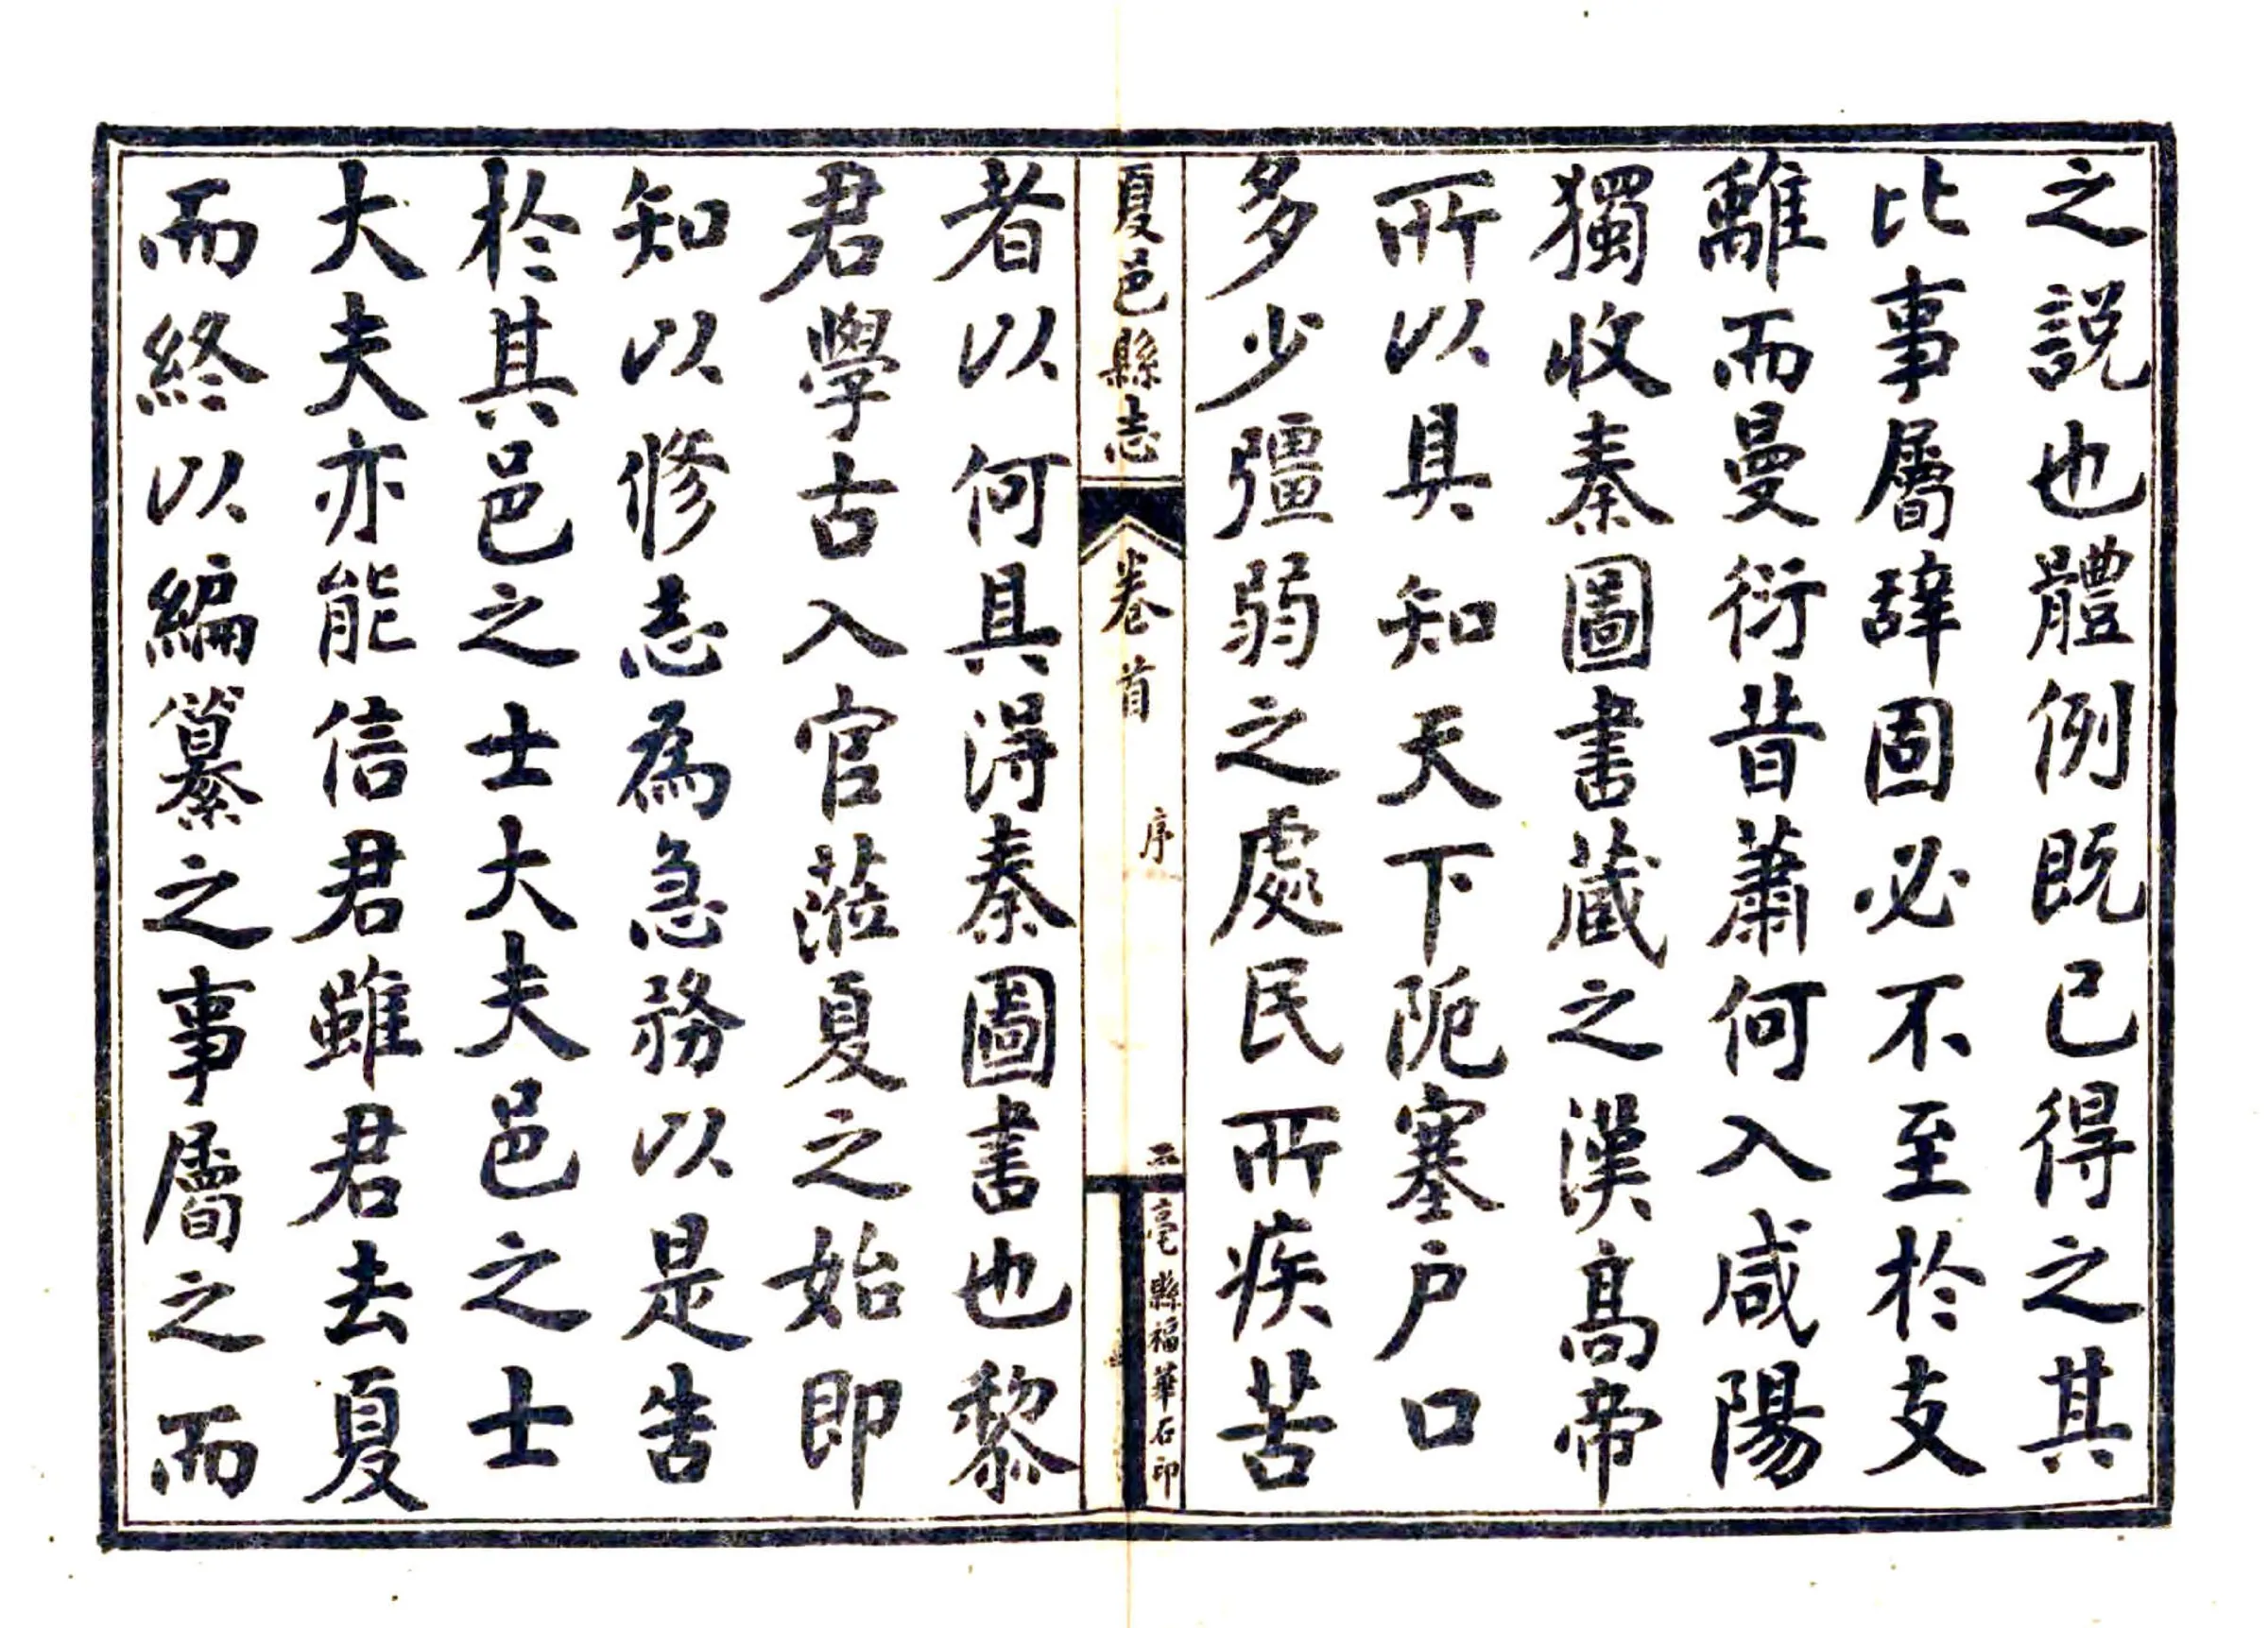 之說也體例既已得之其
比事屬辭固必不至於支
離而曼衍昔蕭何入咸陽
獨收秦圖書藏之漢高帝
所以具知天下阨塞户口
多少彊弱之處民所疾苦
夏邑縣志
卷首
序
二
亳縣福華石印
者以何具得秦圖書也黎
君學古入官蒞夏之始即
知以修志為急務以是告
於其邑之士大夫邑之士
大夫亦能信君雖君去夏
而終以編纂之事屬之而